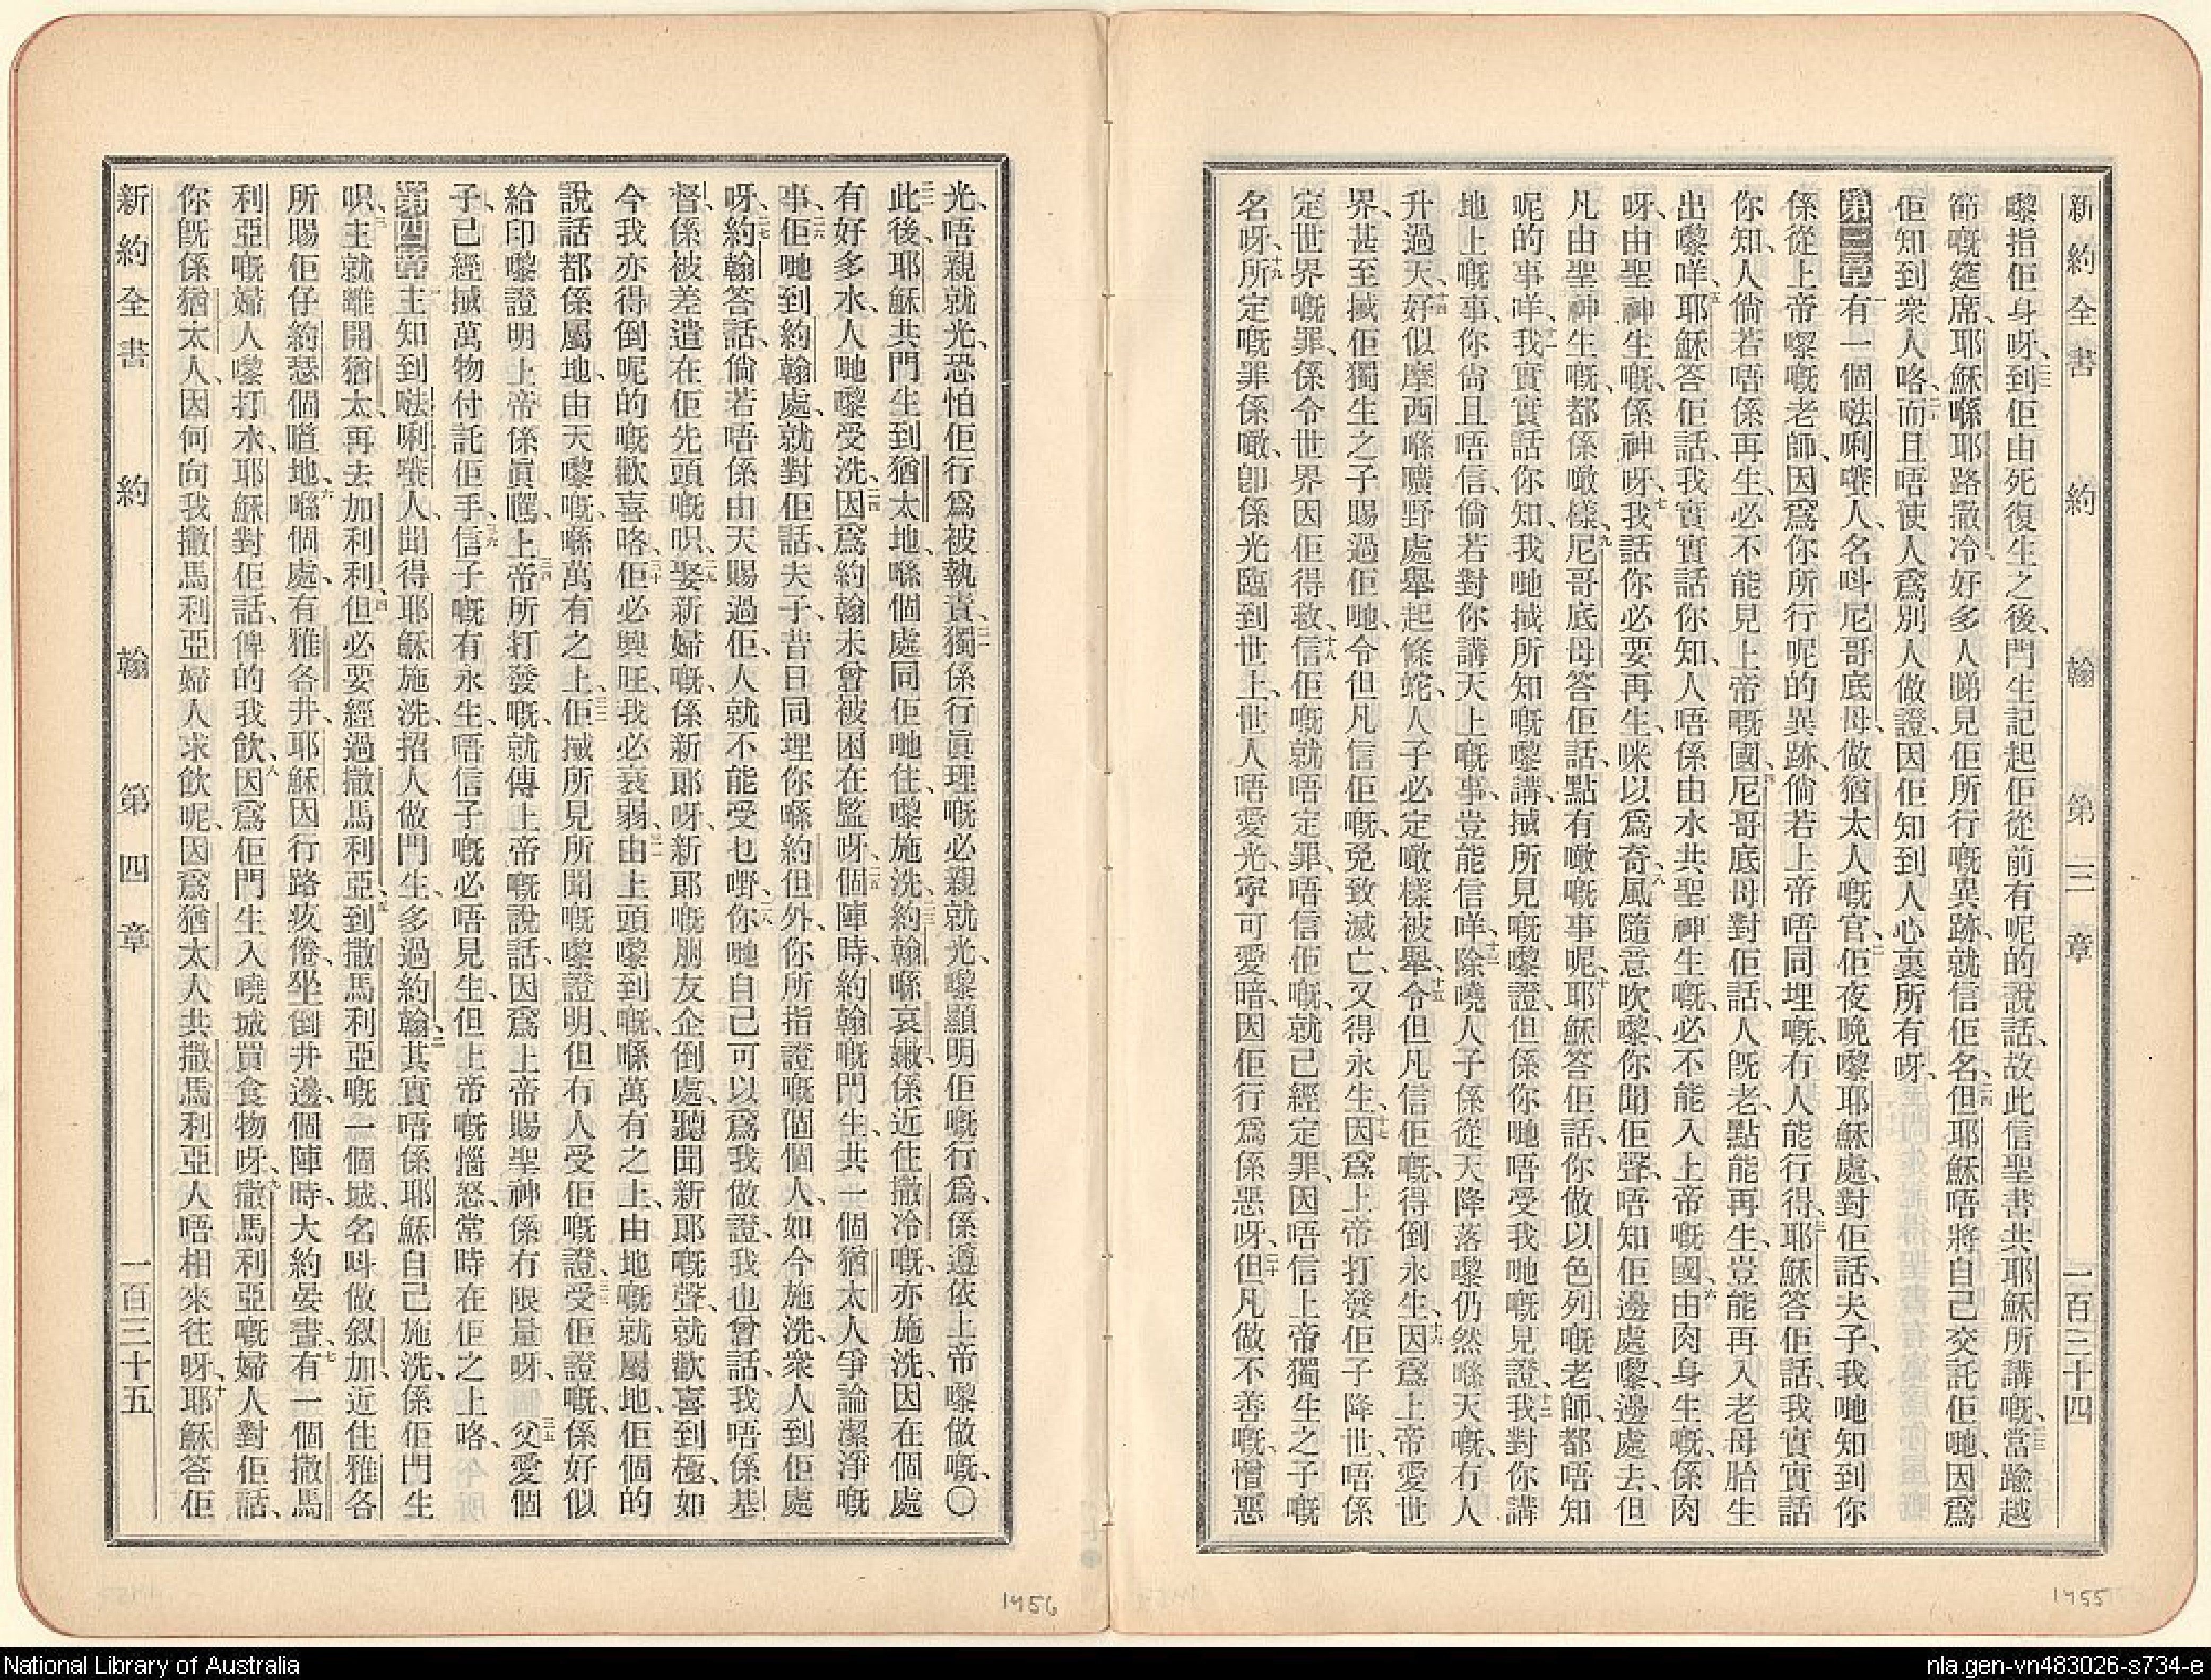 新約全書 約翰 第三章 一百三十四
嚟指佢身呀、二二到佢由死復生之後、門生記起佢從前有呢的說話、故此信聖書共耶穌所講嘅、二三當踰越
節嘅筵席、耶穌喺耶路撒冷、好多人睇見佢所行嘅異跡、就信佢名、二四但耶穌唔將自己交託佢哋、因爲
佢知到衆人咯、二五而且唔使人爲別人做證、因佢知到人心裏所有呀、
第三章一有一個㗎唎嚽人、名呌尼哥底母、做猶太人嘅官、二佢夜晚嚟耶穌處、對佢話、夫子、我哋知到你
係從上帝嚟嘅老師、因爲你所行呢的異跡、倘若上帝唔同埋嘅、冇人能行得、三耶穌答佢話、我實實話
你知、人倘若唔係再生、必不能見上帝嘅國、四尼哥底母對佢話、人既老、點能再生、豈能再入老母胎生
出嚟咩、五耶穌答佢話、我實實話你知、人唔係由水共聖神生嘅、必不能入上帝嘅國、六由肉身生嘅、係肉
呀、由聖神生嘅、係神呀、七我話你必要再生、咪以爲奇、八風隨意吹嚟、你聞佢聲、唔知佢邊處嚟、邊處去、但
凡由聖神生嘅、都係噉樣、九尼哥底母答佢話、點有噉嘅事呢、十耶穌答佢話、你做以色列嘅老師、都唔知
呢的事咩、十一我實實話你知、我哋搣所知嘅嚟講、搣所見嘅嚟證、但係你哋唔受我哋嘅見證、十二我對你講
地上嘅事、你尙且唔信、倘若對你講天上嘅事、豈能信咩、十三除曉人子係從天降落嚟仍然喺天嘅、冇人
升過天、十四好似摩西喺曠野處舉起條蛇、人子必定噉樣被舉、十五令但凡信佢嘅、得倒永生、十六因爲上帝愛世
界、甚至搣佢獨生之子賜過佢哋、令但凡信佢嘅、免致滅亡、又得永生、十七因爲上帝打發佢子降世、唔係
定世界嘅罪、係令世界因佢得救、十八信佢嘅就唔定罪、唔信佢嘅、就已經定罪、因唔信上帝獨生之子嘅
名呀、十九所定嘅罪係噉、卽係光臨到世上、世人唔愛光、寧可愛暗、因佢行爲係惡呀、二十但凡做不善嘅、憎惡
1455
光、唔親就光、恐怕佢行爲被執責、二一獨係行眞理嘅必親就光、嚟顯明佢嘅行爲、係遵依上帝嚟做嘅、〇
二二此後、耶穌共門生到猶太地、喺個處同佢哋住、嚟施洗、二三約翰喺哀嫩、係近住撒冷嘅、亦施洗、因在個處
有好多水、人哋嚟受洗、二四因爲約翰未曾被困在監呀、二五個陣時、約翰嘅門生、共一個猶太人爭論潔淨嘅
事、二六佢哋到約翰處、就對佢話、夫子、昔日同埋你喺約但外、你所指證嘅個個人、如今施洗、衆人到佢處
呀、二七約翰答話、倘若唔係由天賜過佢、人就不能受乜嘢、二八你哋自己可以爲我做證、我也曾話、我唔係基
督、係被差遣在佢先頭嘅呮、二九娶新婦嘅、係新郎呀、新郎嘅朋友企倒處、聽聞新郎嘅聲、就歡喜到極、如
今我亦得倒呢的嘅歡喜咯、三十佢必興旺、我必衰弱、三一由上頭嚟到嘅、喺萬有之上、由地嘅就屬地、佢個的
說話都係屬地、由天嚟嘅、喺萬有之上、三二佢搣所見所聞嘅嚟證明、但冇人受佢嘅證、三三受佢證嘅、係好似
給印嚟證明上帝係眞嘅、三四上帝所打發嘅、就傳上帝嘅說話、因爲上帝賜聖神係冇限量呀、三五父愛個
子、已經搣萬物付託佢手、三六信子嘅有永生、唔信子嘅必唔見生、但上帝嘅惱怒、常時在佢之上咯、
第四章一主知到㗎唎嚽人、聞得耶穌施洗、招人做門生、多過約翰、二其實唔係耶穌自己施洗、係佢門生
呮、三主就離開猶太、再去加利利、四但必要經過撒馬利亞、五到撒馬利亞嘅一個城、名呌做叙加、近住雅各
所賜佢仔約瑟個笪地、六喺個處、有雅各井、耶穌因行路疚倦、坐倒井邊、個陣時、大約晏晝、七有一個撒馬
利亞嘅婦人嚟打水、耶穌對佢話、俾的我飲、八因爲佢門生入曉城買食物呀、九撒馬利亞嘅婦人對佢話、
你旣係猶太人、因何向我撒馬利亞婦人求飲呢、因爲猶太人共撒馬利亞人唔相來往呀、十耶穌答佢
新約全書 約翰 第四章 一百三十五
1456
National Library of Australia
nla.gen-vn483026-s734-e